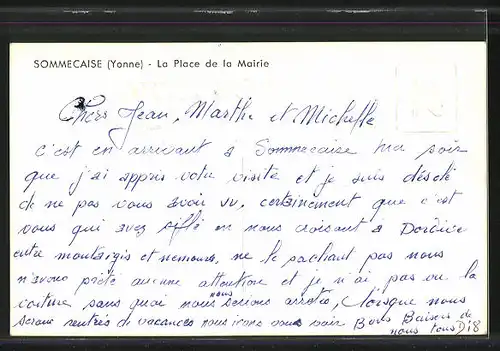 SOMMECAISE (Yonne) - La Place de la Mairie
Chers Jean, Marthe et Michelle
c'est en arrivant a Sommecaise hier soir
que j'ai appris votre visite et je suis désolé
de ne pas vous avoir vu, certainement que c'est
vous qui avez sifflé en nous croisant a
entre montargis et nemours, ne le sachant pas nous
n'avons prêté aucune attention et je n'ai pas vu la
voiture sans quoi nous nous serions arretés, lorsque nous
serons rentrés de vacances nous irons vous voir Bons Baisers de
nous tous